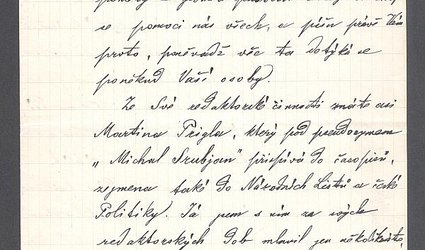 se pomoci nás všech, a píši právě Vám
proto, poněvadž věc ta dotýká se
poněkud Vaší osoby.
Ze Své redaktorské činnosti znáte asi
Martina Peigla, který pod pseudonymem
„Michal Szubjan" přispívá do časopisů,
zejmena také do Národních Listů a České
Politiky. Já jsem s ním za svých
redaktorských dob mluvil jen několikráte,